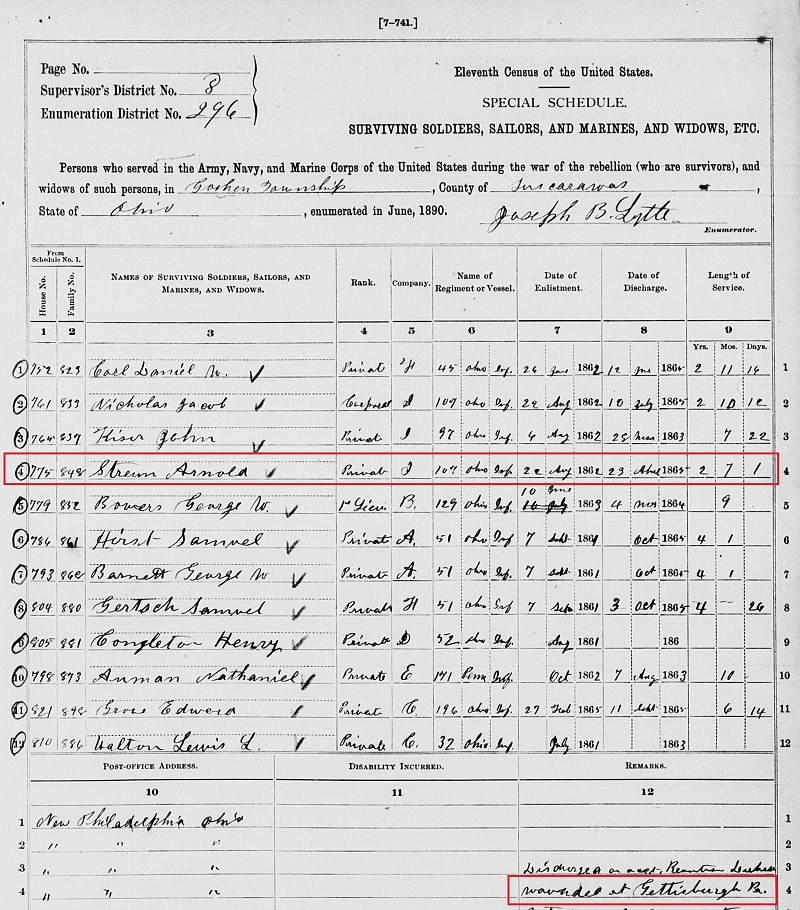 [7–741.]
Page No.
Supervisor's District No. 8
Enumeration District No. 296
Eleventh Census of the United States.
SPECIAL SCHEDULE.
SURVIVING SOLDIERS, SAILORS, AND MARINES, AND WIDOWS, ETC.
Persons who served in the Army, Navy, and Marine Corps of the United States during the war of the rebellion (who are survivors), and
widows of such persons, in Goshen Township, County of Tuscarawas,
State of Ohio, enumerated in June, 1890. Joseph B. Lytle
Enumerator.
From Schedule No. 1.
House No. Family No. Names of Surviving Soldiers, Sailors, and Marines, and Widows. Rank. Company. Name of Regiment or Vessel. Date of Enlistment. Date of Discharge. Length of Service.
1 2 3 4 5 6 7 8 9
Yrs. Mos. Days.
1 752 823 Carl Daniel W. Private H 45 Ohio Inf. 26 1862 12 1865 2 11 1
2 761 833 Nicholas Jacob Corporal D 107 Ohio Inf. 22 Aug 1862 10 July 1865 2 10 12 2
3 764 837 Kiser John Private I 97 Ohio Inf. 6 Aug 1862 28 Mar 1863 7 22 3
4 775 848 Arnold Private I 107 Ohio Inf. 22 Aug 1862 23 1865 2 7 1 4
5 779 852 Bowers George W. 1st Lieu B. 129 Ohio Inf. 10 June 10 July 1863 4 Mar 1864 9 5
6 786 861 Hirst Samuel Private A. 51 Ohio Inf. 7 Sept 1861 Oct 1865 4 1 6
7 793 868 Barnett George W Private A. 51 Ohio Inf. 7 Sept 1861 Oct 1865 4 1 7
8 804 880 Gertsch Samuel Private H 51 Ohio Inf. 7 Sep 1861 3 Oct 1865 4 – 26 8
9 805 881 Congleton Henry Private D 52 Ohio Inf. Aug 1861 186 9
10 798 873 Anman Nathaniel Private E 171 Penn Inf. Oct 1862 7 Aug 1863 10 10
11 821 898 Grose Edward Private C. 196 Ohio Inf. 27 Feb 1865 11 Sept 1865 6 14 11
12 810 886 Walton Lewis L. Private C. 32 Ohio Inf. July 1861 1863 12
Post-Office Address. Disability Incurred. Remarks.
10 11 12
1 New Philadelphia Ohio 1
2 " " " 2
3 " " " Discharged on acct. 3
4 " " " wounded at Gettisburgh Pa. 4